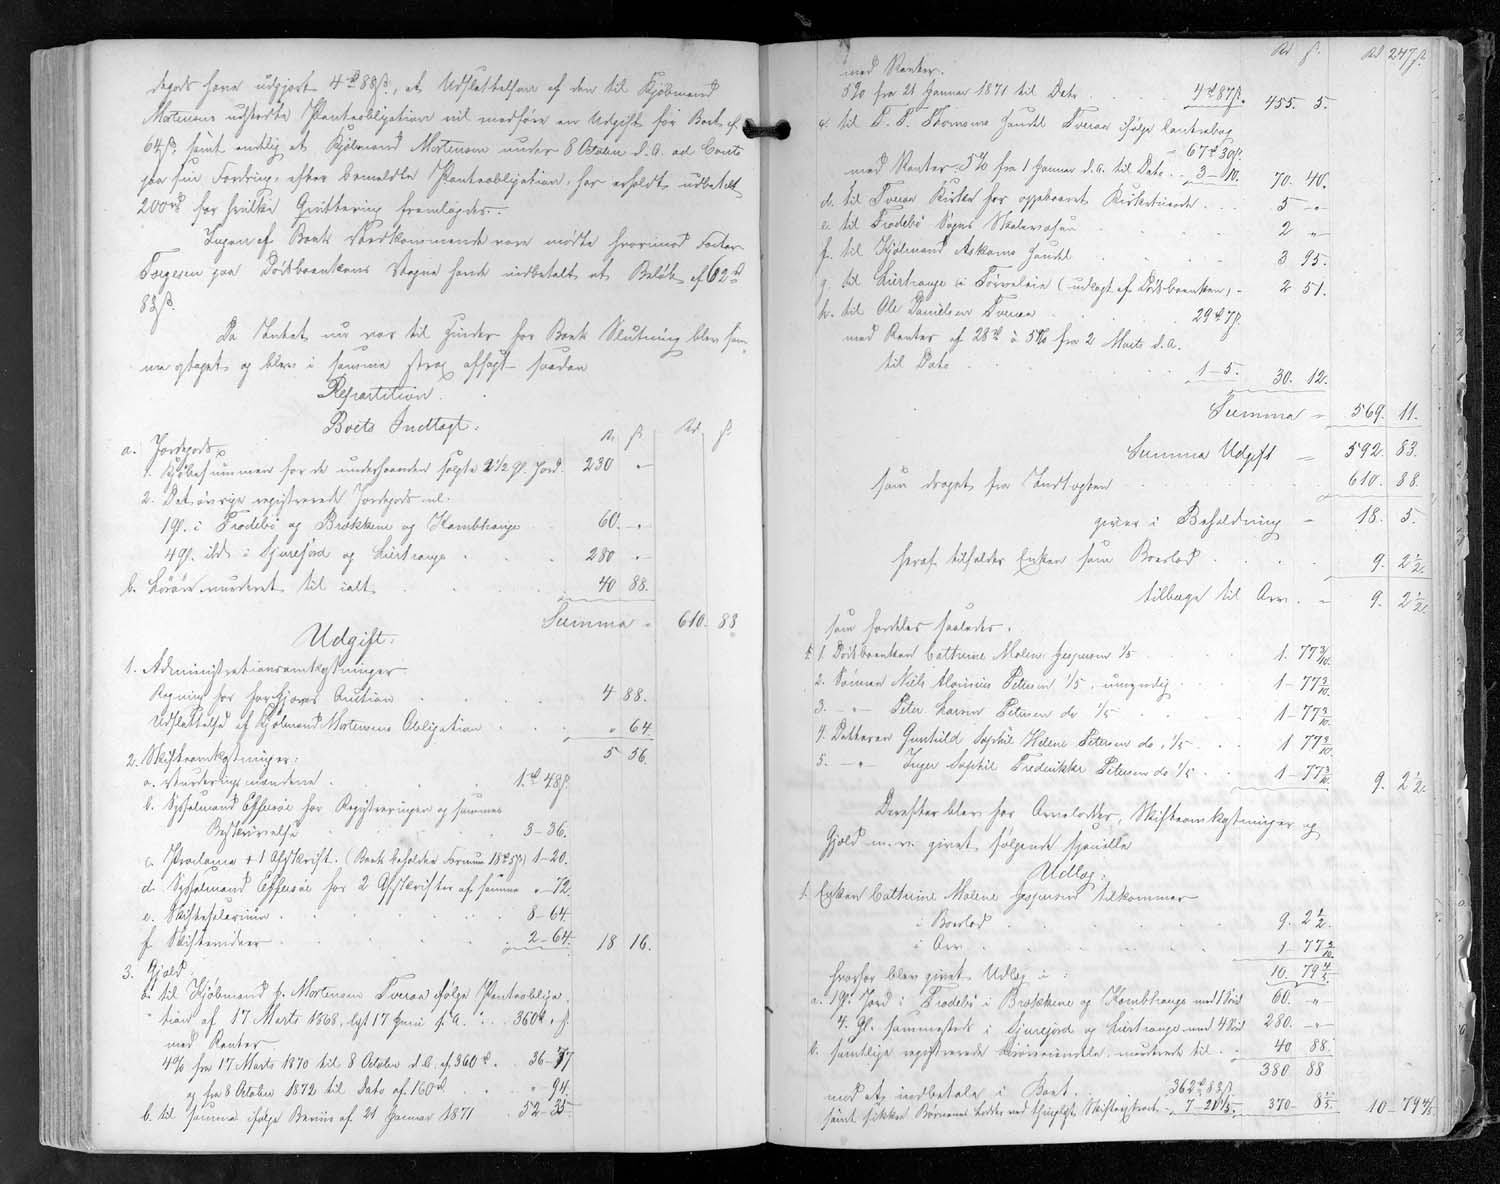 degods have udgjort 4 rd 88 ß, at Udslettelsen af den til Kjøbmand
Mortensen udstedte Panteobligation vil medføre en Udgift for Boet af
64 ß, samt endelig at Kjøbmand Mortensen under 8 October d. A. ad Conto
paa sin Fordring, efter bemeldte Panteobligation, har erholdt udbetalt
200 rd for hvilke Qvittering fremlagdes.
Ingen af Boets Vedkommende vare mødte hvorimod Factor
paa Dødsboenkens Vegne havde indbetalt et Beløb af 62 rd
83 ß.
Da Intet nu var til Hinder for Boets Slutning blev sam-
me optaget og blev i samme strax afsagt saadan
Repartition.
Boets Indtægt:
Rd. ß. Rd. ß.
a. Jordegods
1. Kjøbesummen for de underhaanden solgte 2 1/2 Gl. Jord. 230 "
2. Det øvrige registrerede Jordegods nl.
1 Gl. i Trødebø og Brekkene og Hambhauge 60. "
4 Gl. ibd. i Djurefjord og Lurhauge 280 "
b. Løsøre vurderet til ialt 40 88.
Summa 610. 88
Udgift:
1. Administrationsomkostninger
Regning for forskjøns Auction 4 88.
Udslettelse af Kjøbmand Mortensens Obligation " 64.
5 56.
2. Skifteomkostninger:
a. Vurderingsmændene 1 rd 48 ß
b. Sysselmand Effersøe for Registreringen og sammes
Beskrivelse 3 - 36.
c. Proclama + 1 Afskrift. (Boets beholden Formue 18 rd 5 ß) 1 - 20.
d. Sysselmand Effersøe for 2 Afskrifter af samme " - 72.
e. Skiftesalarium 8 - 64.
f. Skiftevidner 2 - 64. 18 16.
3. Gjæld
a. til Kjøbmand Mortensen Tveraa ifølge Panteobliga-
tion af 17 Marts 1868, lyst 17 Juni s. A. 360 rd " ß.
med Renter
4% fra 17 Marts 1870 til 8 October d. A. af 360 rd 36 - 77
og fra 8 October 1872 til Dato af 160 rd " 94.
b. til samme ifølge Bevis af 21 Januar 1871 52 - 35
Rd ß. Rd 247 ß.
med Renter.
5% fra 21 Januar 1871 til Dato 4 rd 87 ß. 455. 5.
c. til T. P. Thomsens Handel Tveraa ifølge Contrabog
67 rd 30 ß.
med Renter 5% fra 1 Januar d. A. til Dato 3 - 10. 70. 40.
d. til Tveraa Kirke for opebaaret Kirketiende 5 "
e. til Frodebø Sogns Skolevæsen 2 "
f. til Kjøbmand Askams Handel 3 95.
g. til Lurhauge i Tørveleie (udlagt af Dødsboenken) 2 51.
h. til Ole Danielsen Tveraa 29 rd 7 ß.
med Renter af 28 rd à 5% fra 2 Marts d. A.
til Dato 1 - 5. 30. 12.
Summa 569. 11.
Summa Udgift 592. 83.
som draget fra Indtægten 610. 88.
giver i Beholdning 18. 5.
heraf tilfalder Enken som Boeslod 9. 2 1/2.
tilbage til Arv 9. 2 1/2.
som fordeles saaledes:
1. Dødsboenken Cathrine Malene Jespersen 1/5 1. 77 3/10.
2. Sønnen Niels Aloinius Petersen 1/5, umyndig 1 - 77 3/10.
3. - " - Peter Larsen Petersen do 1/5 1 - 77 3/10.
4. Datteren Gunhild Sophie Helene Petersen do. 1/5 1 77 3/10.
5. - " - Inger Sophie Frederikke Petersen do 1/5 1 - 77 3/10. 9. 2 1/2.
Derefter blev for Arvelodder, Skifteomkostninger og
Gjæld m. v. givet følgende specielle
Udlæg:
1. Enken Cathrine Malene Jespersen tilkommer
i Boeslod 9. 2 1/2.
i Arv 1 - 77 3/10.
10. 79 4/5
hvorfor blev givet Udlæg i:
a. 1 Gl. Jord i Trødebø i Brekkene og Hambhauge med 1 Skind 60. "
4. Gl. sammesteds i Djurefjord og Lurhauge med 4 Skind 280. "
b. samtlige registrerede Løsøreeiendele, vurderede til 40 88.
380. 88
mod at indbetale i Boet 362 rd 83 ß
samt sikkre Børnenes Lodder ved thinglyst Skifteextract 7 - 21 1/5. 370 - 8 1/5. 10 - 79 4/5